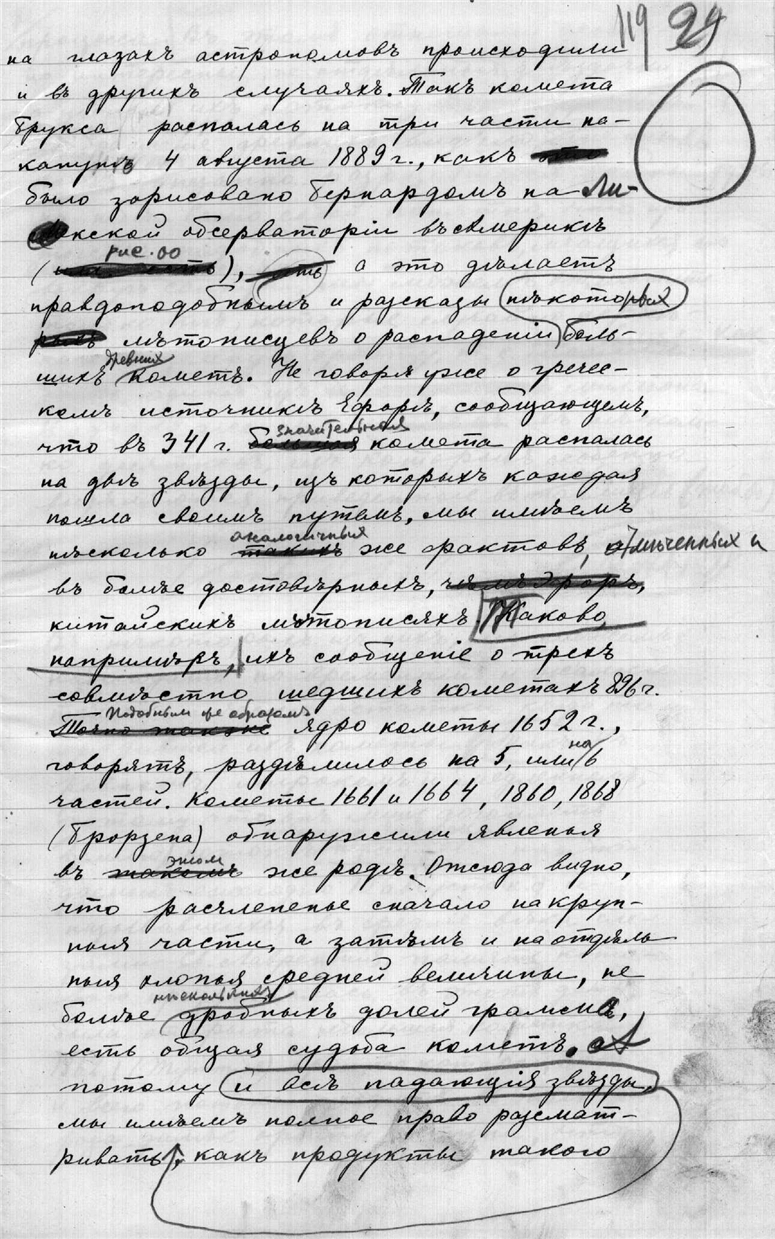 119 24
на глазахъ астрономовъ происходили
и въ другихъ случаяхъ. Такъ комета
Брукса распалась на три части на-
канунѣ 4 августа 1889 г., какъ
было зарисовано Бернардомъ на Ли-
кской обсерваторіи въ Америкѣ
рис. 00
( ), а это дѣлаетъ
правдоподобнымъ и разсказы нѣкоторых
лѣтописцевъ о распаденіи боль-
древних
шихъ кометъ. Не говоря уже о гречес-
комъ источникѣ Ефорѣ, сообщающемъ,
значительная
что въ 341 г. большая комета распалась
на двѣ звѣзды, изъ которыхъ каждая
пошла своимъ путемъ, мы имѣемъ
аналогичных
нѣсколько такихъ же фактовъ, отмѣченных и
въ болѣе достовѣрныхъ, чѣмъ Эфоръ,
китайскихъ лѣтописяхъ. Таково,
напримѣръ, ихъ сообщеніе о трехъ
совмѣстно шедшихъ кометахъ 896 г.
Подобным же образомъ
Точно также ядро кометы 1652 г.,
говорятъ, раздѣлилось на 5, или на 6
частей. Кометы 1661 и 1664, 1860, 1868
(Брорзена) обнаружили явленья
этом
въ такомъ же родѣ. Отсюда видно,
что расчлененье сначало на круп-
ныя части, а затѣмъ и на отдѣль
ныя хлопья средней величины, не
нѣскольких
болѣе дробныхъ долей грамма,
есть общая судьба кометъ. А
потому и всѣ падающія звѣзды,
мы имѣемъ полное право разсмат-
ривать, какъ продукты такого